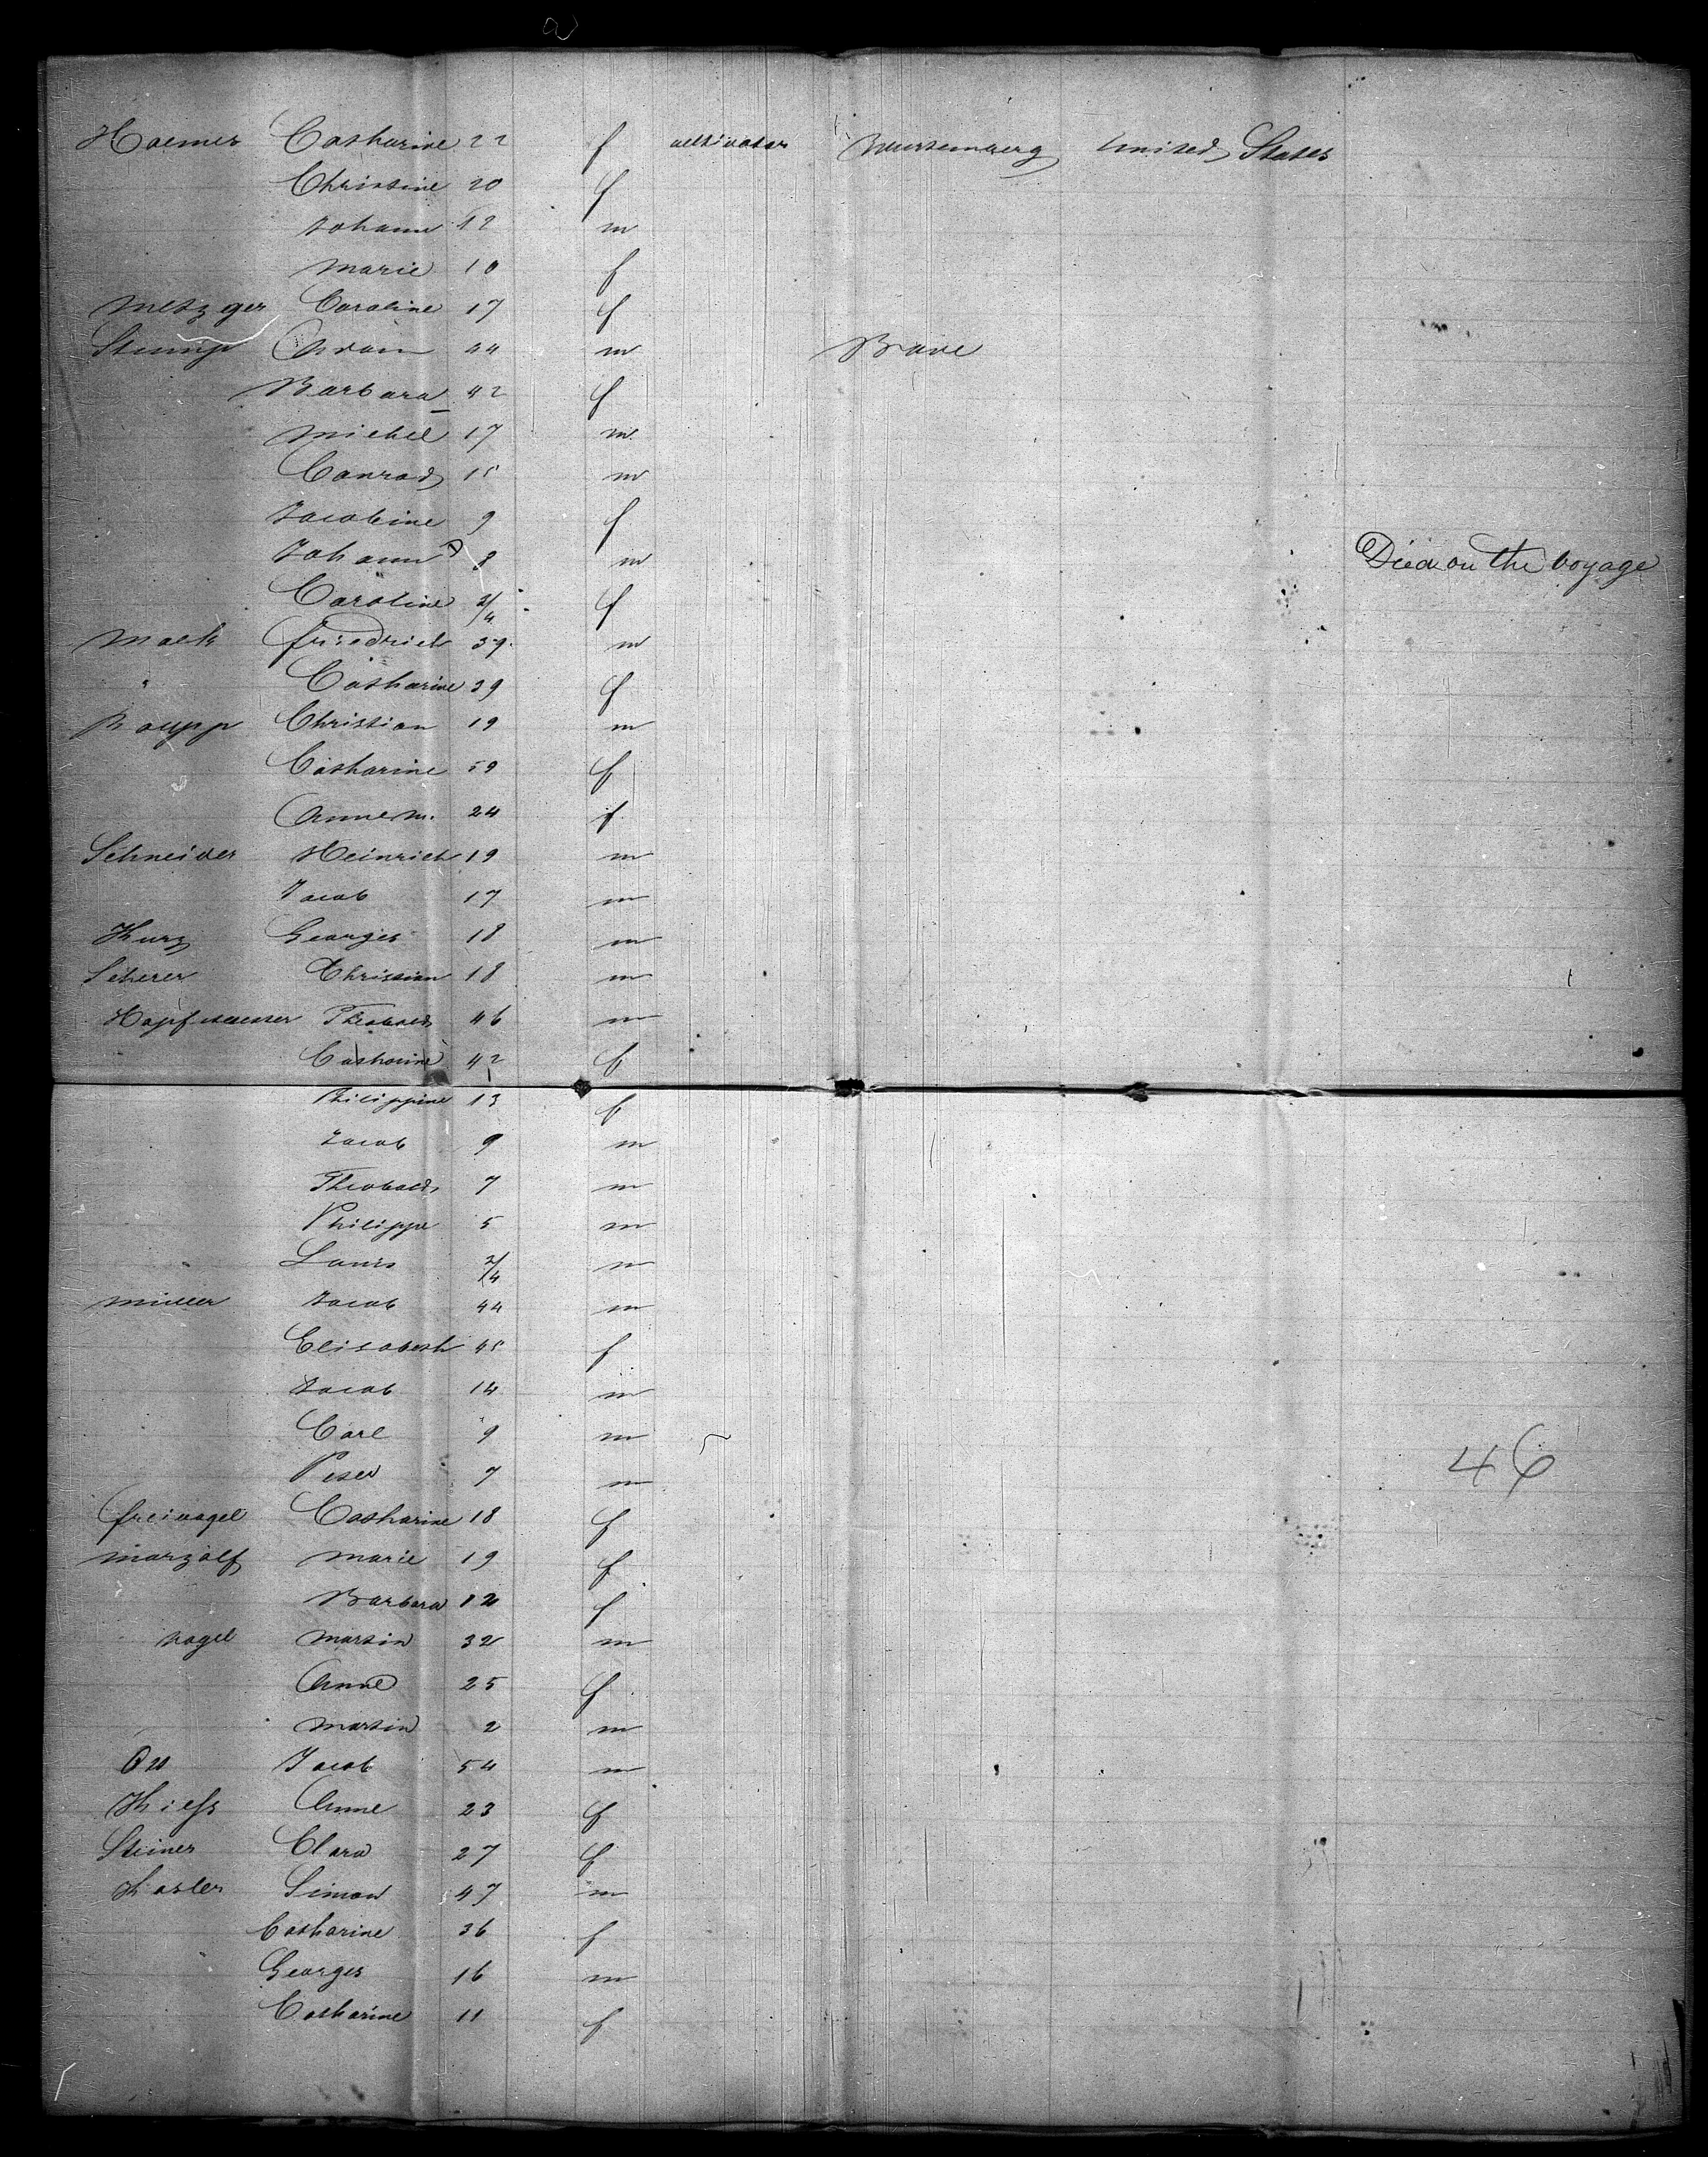 Hoemer Catharine 22 f cultivator Wurtemberg United States
Christine 20 f
Johann 12 m
Marie 10 f
Metzger Caroline 17 f
Stump Adam 44 m Bade
Barbara 42 f
Michel 17 m
Conrad 15 m
Jacobine 9 f
Johann 8 m Died on the voyage
Caroline 3/4 f
Mack Friedrich 39 m
" Catharine 39 f
Raupp Christian 19 m
Catharine 59 f
Anne M. 24 f
Schneider Heinrich 19 m
Jacob 17 m
Kurz Georges 18 m
Scherer Christian 18 m
Theobald 46 m
Catharine 42 f
Philippine 13 f
Jacob 9 m
Theobald 7 m
Philippe 5 m
Louis 3/4 m
Müller Jacob 44 m
Elisabeth 45 f
Jacob 14 m
Carl 9 m
46
Peter 7 m
Freivogel Catharine 18 f
Marzolf Marie 19 f
Barbara 12 f
Nagel Martin 32 m
Anne 25 f
Martin 2 m
Ott Jacob 54 m
Kiess Anne 23 f
Steiner Clara 27 f
Koster Simon 47 m
Catharine 36 f
Georges 16 m
Catharine 11 f